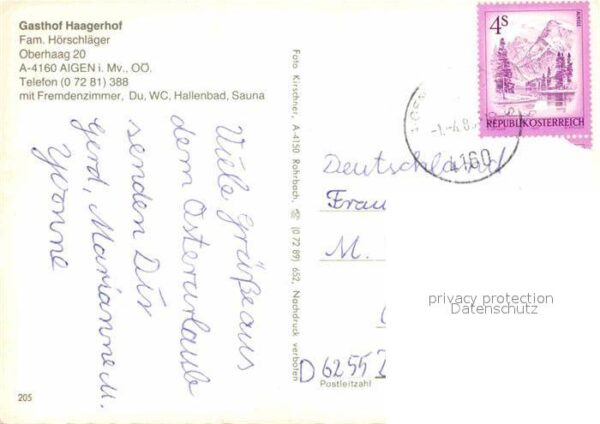 Gasthof Haagerhof
Fam. Hörschläger
Oberhaag 20
A-4160 AIGEN i. Mv., OÖ.
Telefon (0 72 81) 388
mit Fremdenzimmer, Du, WC, Hallenbad, Sauna
Viele Grüße aus
dem Osterurlaub
senden Dir
Gerd, Marianne M.
Yvonne
205
Foto-Kirschner, A-4150 Rohrbach, ☏ (0 72 89) 652, Nachdruck verboten
4S
ALMSEE
REPUBLIK ÖSTERREICH
4160
Deutschland
Frau
M.
D 6255
Postleitzahl
privacy protection
Datenschutz